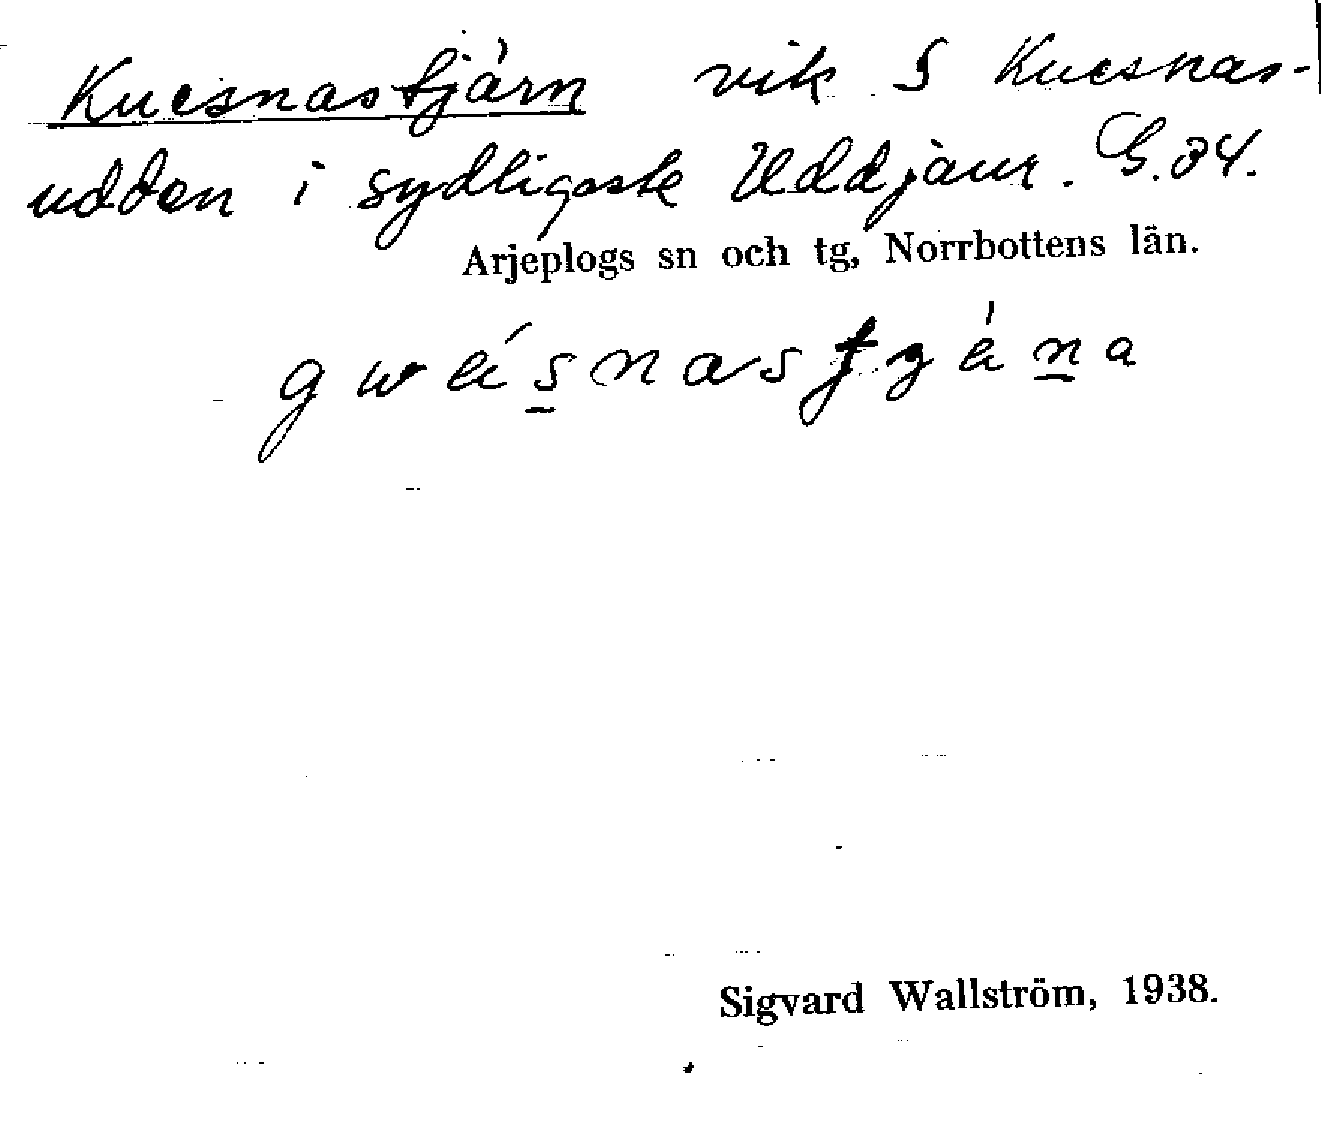 Kuesnastjärn vik S Kuesnas-
udden i sydligaste Uddjaur. G.34.
Arjeplogs sn och tg, Norrbottens län.
Sigvard Wallström, 1938.